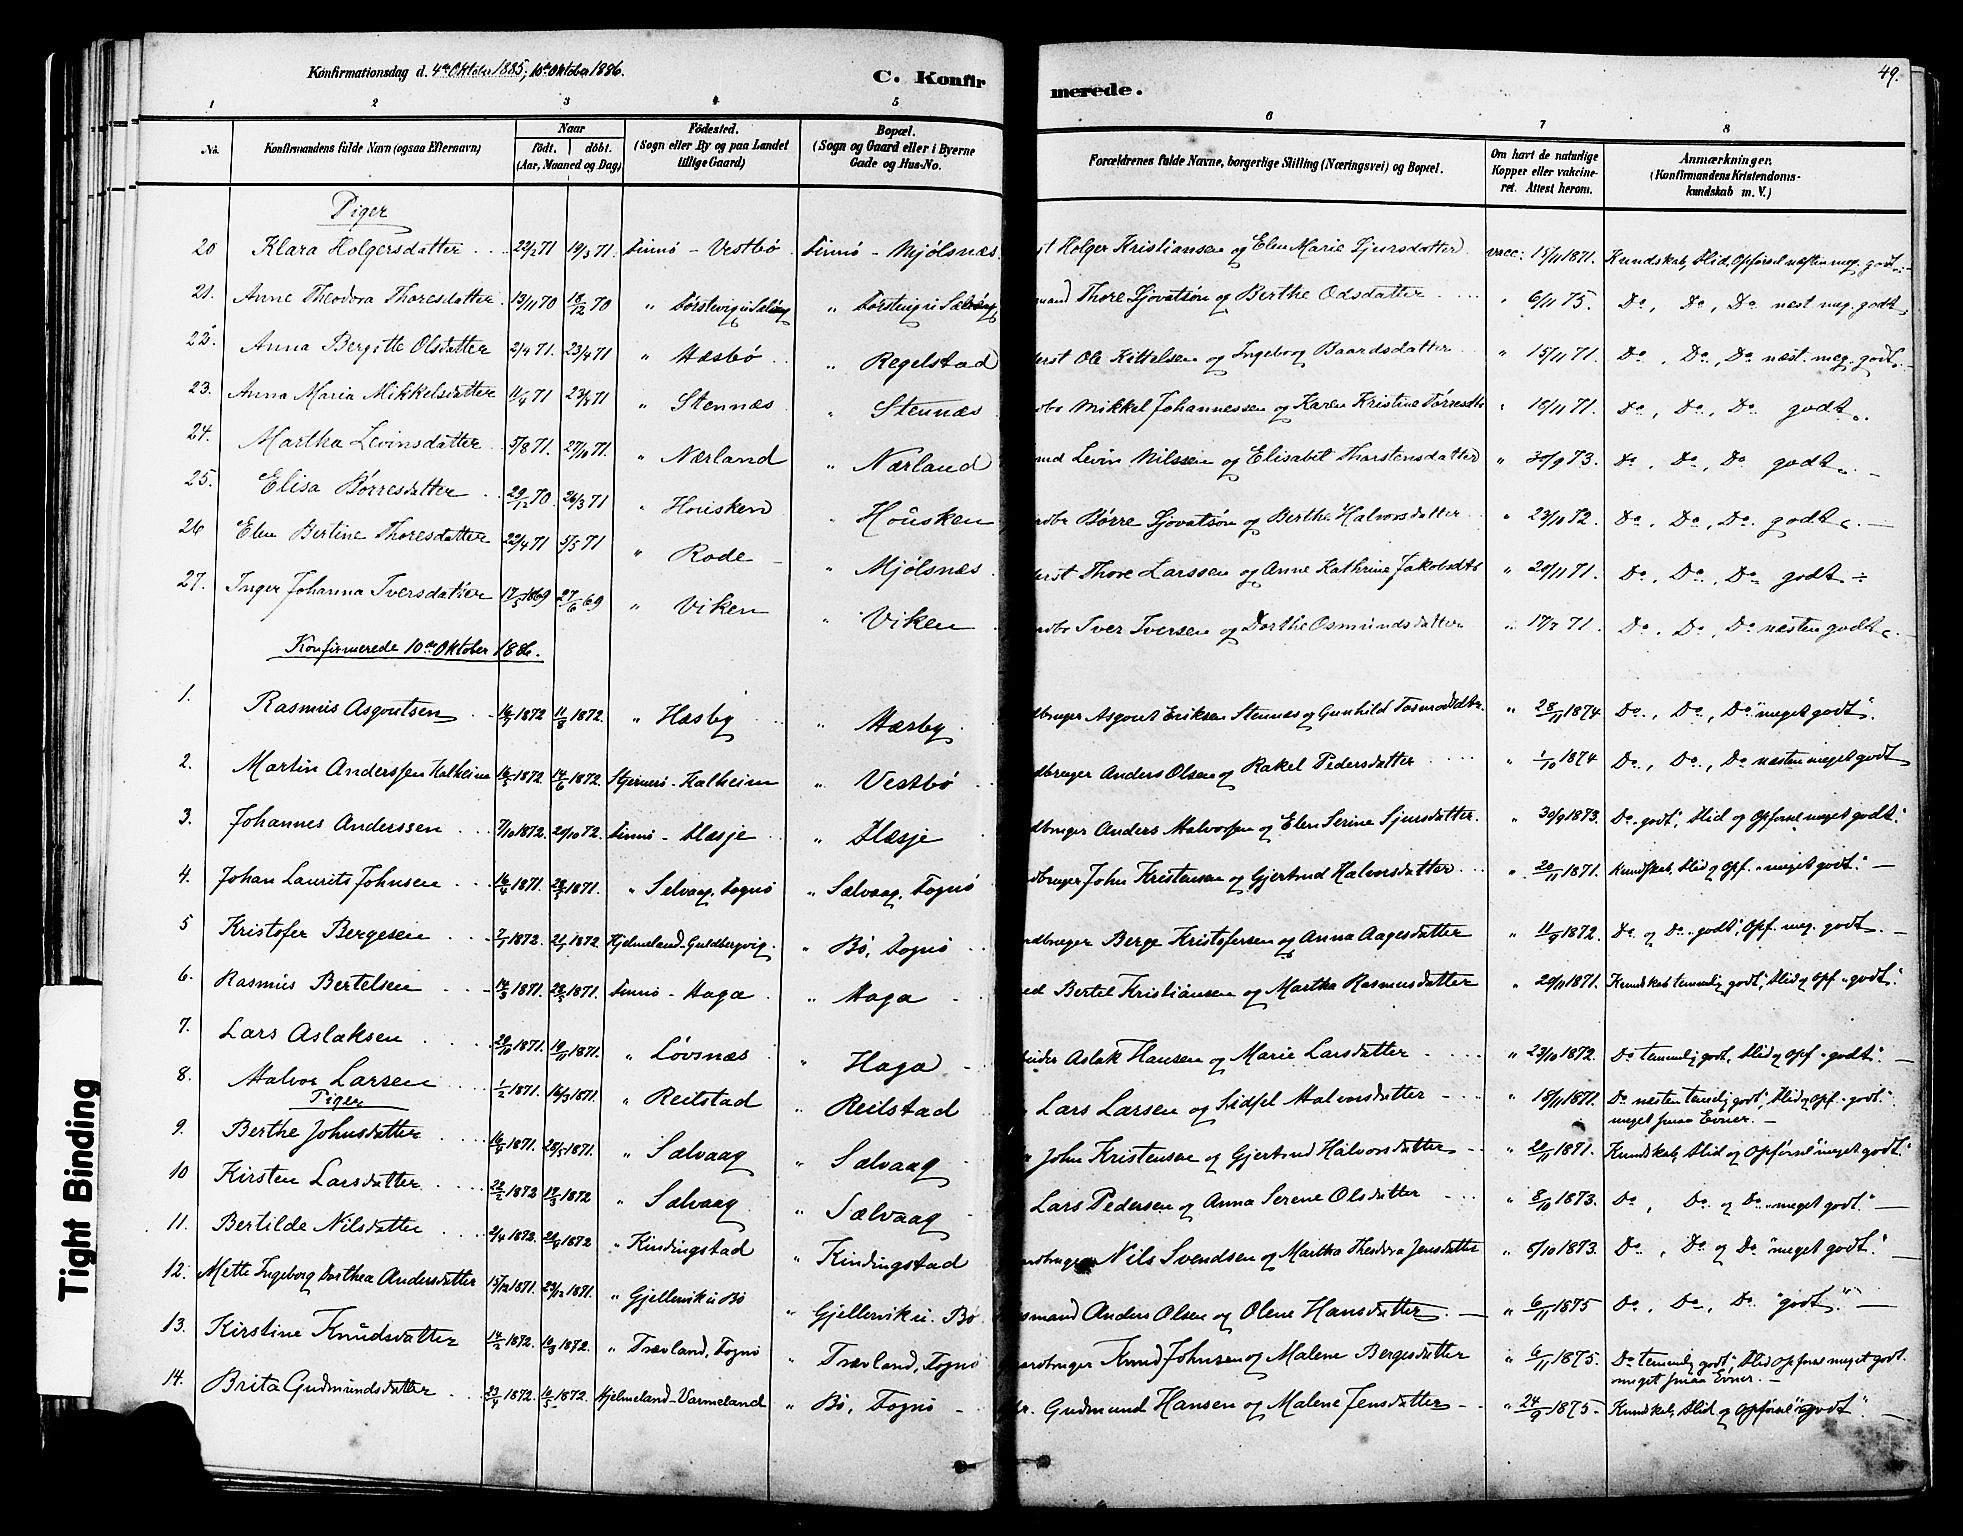 Konfirmationsdag d. 4de Oktober 1885; 10de Oktober 1886. C. Konfir merede. 49.
1 2 3 4 5 6 7 8
No. Konfirmandens fulde Navn (ogsaa Efternavn) Naar født. døbt. (Aar, Maaned og Dag) Fødested. (Sogn eller By og paa Landet tillige Gaard) Bopæl. (Sogn og Gaard eller i Byerne Gade og Hus-No. Forældrenes fulde Navne, borgerlige Stilling (Næringsvei) og Bopæl. Om havt de naturlige Kopper eller vakcineret. Attest herom. Anmærkninger. (Konfirmandens Kristendomskundskab m. V.)
Piger
20 Klara Holgersdatter 22/2 71 19/3 71 Finnø - Vestbø Finnø - Mjølsnæs. Holger Kristiansen og Elen Marie Sjursdatter vacc: 15/11 1871. Kundskab, Flid, Opførsel næsten meg. godt
21. Anne Theodora Thoresdatter 13/11 70 18/12 70 " " Thore Sjovatsøn og Berthe Odsdatter " 6/11 75. Do, Do, Do næst meg. godt
22. Anna Bergitte Olsdatter 2/4 71. 23/4 71 " Hæsbø " Regelstad Ole Kittelsen og Ingeborg Baardsdatter " 15/11 71. Do, Do, Do næst. meg. godt.
23. Anna Maria Mikkelsdatter 11/4 71 23/5 71 " Stennæs " Stennæs Mikkel Johannessen og Karen Kristine " 18/11 71. Do, Do, Do godt.
24. Martha Levinsdatter 5/8 71. 27/10 71. " Nærland " Nærland Levin Nilssen og Elisabet Thorstensdatter " 30/9 73. Do, Do, Do godt.
25. Elisa Børresdatter 29/12 70 26/3 71 " Housken " Housken Børre Sjovatsøn og Berthe Halvorsdatter " 23/10 72. Do, Do, Do. godt.
26 Elen Bertine Thoresdatter 22/4 71 5/5 71 " Rode " Mjølsnæs Thore Larssen og Anne Kathrine Jakobsdtr " 20/11 71. Do, Do, Do godt
27. Inger Johanna Iversdatter 17/5 1869 27/6 69 " Viken " Viken Iver Iversen og Dorthe Osmundsdatter " 17/7 71. Do, Do, Do næsten godt.
Konfirmerede 10de Oktober 1886.
1. Rasmus Asgoutsen 16/7 1872 11/8 1872. " Hæsby " Hæsby. Asgout Eriksen Stennæs og Gunhild " 28/11 1874 Do, Do, Do "meget godt".
2. Martin Anderssen Kalheim 16/5 1872. 17/6 1872. Stjernerø - Kalheim " Vestbø dbruger Anders Olsen og Rakel Pedersdatter " 1/10 1874 Do, Do, Do næsten meget godt
3. Johannes Anderssen 7/10 1872. 29/10 72. Finnø - Flæsje " Flæsje dbruger Anders Halvorsen og Elen Serine Sjursdatter. " 30/9 1873. Do "godt", Flid og Opførsel meget godt."
4. Johan Laurits Johnsen 16/4 1871. 28/5 1871. " Selvaag, Fognø " Sælvaag, Fognø dbruger John Kristensen og Gjertrud Halvorsdatter " 20/11 1871. Kundskab, Flid og Opf. "meget godt." -
5 Kristofer Bergesen 7/1 1872. 21/1 1872. Hjelmeland - Guldbergvig. " Bø, Fognø ndbruger Berge Kristofersen og Anna Aagesdatter " 11/9 1872. Do og Do godt; Opf. meg. godt. -
6. Rasmus Bertelsen 17/3 1871. 28/5 1871. Finnø - Haga " Haga Bertel Kristiansen og Martha Rasmusdatter " 20/11 1871. Kundskab temmelig godt; Flid og Opf "godt".
7. Lars Aslaksen 20/10 1871. 19/11 1871. " Løvsnæs " Haga Aslak Hansen og Marie Larsdatter " 23/10 1872. Do temmelig godt, Flid og Opf "godt". -
8. Halvor Larsen 1/2 1871. 16/3 1871. " Reilstad " Reilstad Lars Larsen og Sidsel Halvorsdatter " 18/11 1871. Do næsten temmelig godt; Flid og Opf "godt". meget smaa Evner. -
Piger
9. Berthe Johnsdatter 16/4 1871. 28/5 1871. " Sælvaag " Sælvaag John Kristensen og Gjertrud Halvorsdatter " 20/11 1871. Kundskab, Flid og Opførsel "meget godt."
10 Kirsten Larsdatter 22/2 1872 17/3 1872 " Sælvaag " Sælvaag Lars Pedersen og Anna Serene Olsdatter " 8/10 1873. Do, Do og Do "meget godt." -
11. Bertilde Nilsdatter 2/4 1872. 1872 " Kindingstad " Kindingstad Nils Svendsen og Martha Theodora Jensdatter " 8/10 1873. Do, Do og Do "meget godt." -
12. Mette Ingeborg Dorthea Andersdatter 15/12 1871. 29/12 1871. " Gjellervik u. Bø " Gjellervik u. Bø smand Anders Olsen og Olene Hansdatter " 6/11 1875 Do, Do, Do "godt." -
13. Kirstine Knudsdatter 14/2 1872. 10/3 1872. " Trævland, Fognø " Trævland, Fognø Knud Johnsen og Malene Bergesdatter " 6/11 1875. Do temmelig godt; Flid Opførsel meget godt. meget smaa Evner. -
14. Brita Gudmundsdatter 23/4 1872. 10/5 1872. Hjelmeland - Varmeland " Bø, Fognø Gudmund Hansen og Malene Jensdatter " 24/9 1875 Kundskab, Flid og Opførsel "godt". -
Tight Binding